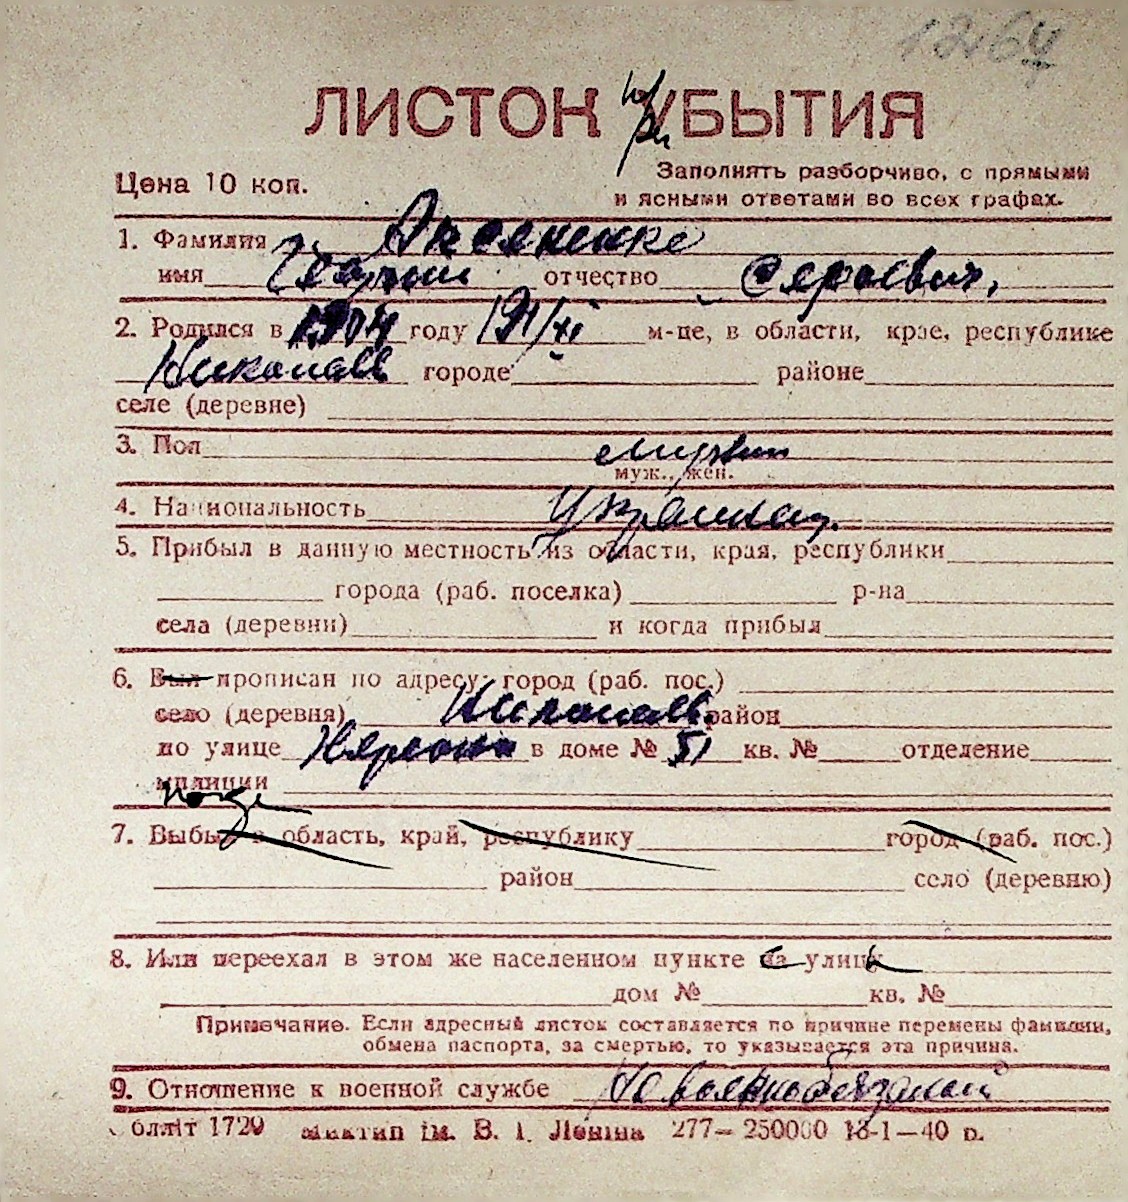 1264
ЛИСТОК УБЫТИЯ
при
Заполнять разборчиво, с прямыми
Цена 10 коп.
и ясными ответами во всех графах.
1. Фамилия Аксененко
имя Георгий отчество Сергеевич,
2. Родился в 1904 году 19/XI м-це, в области, крае, республике
Николаев городе районе
селе (деревне)
3. Пол мужчин
муж., жен.
4. Национальность Украинец
5. Прибыл в данную местность из области, края, республики
города (раб. поселка) р-на
села (деревни) и когда прибыл
6. Был прописан по адресу: город (раб. пос.)
село (деревня) Николаев район
по улице в доме № 51 кв. № отделение
милиции
7. Выбыл в область, край, республику город (раб. пос.)
район село (деревню)
8. Или переехал в этом же населенном пункте на улицу
дом № кв. №
Примечание. Если адресный листок составляется по причине перемены фамилии,
обмена паспорта, за смертью, то указывается эта причина.
9. Отношение к военной службе Невоеннобязаный
облліт 1729 міктип ім. В. І. Леніна 277—250000 18-1—40 р.